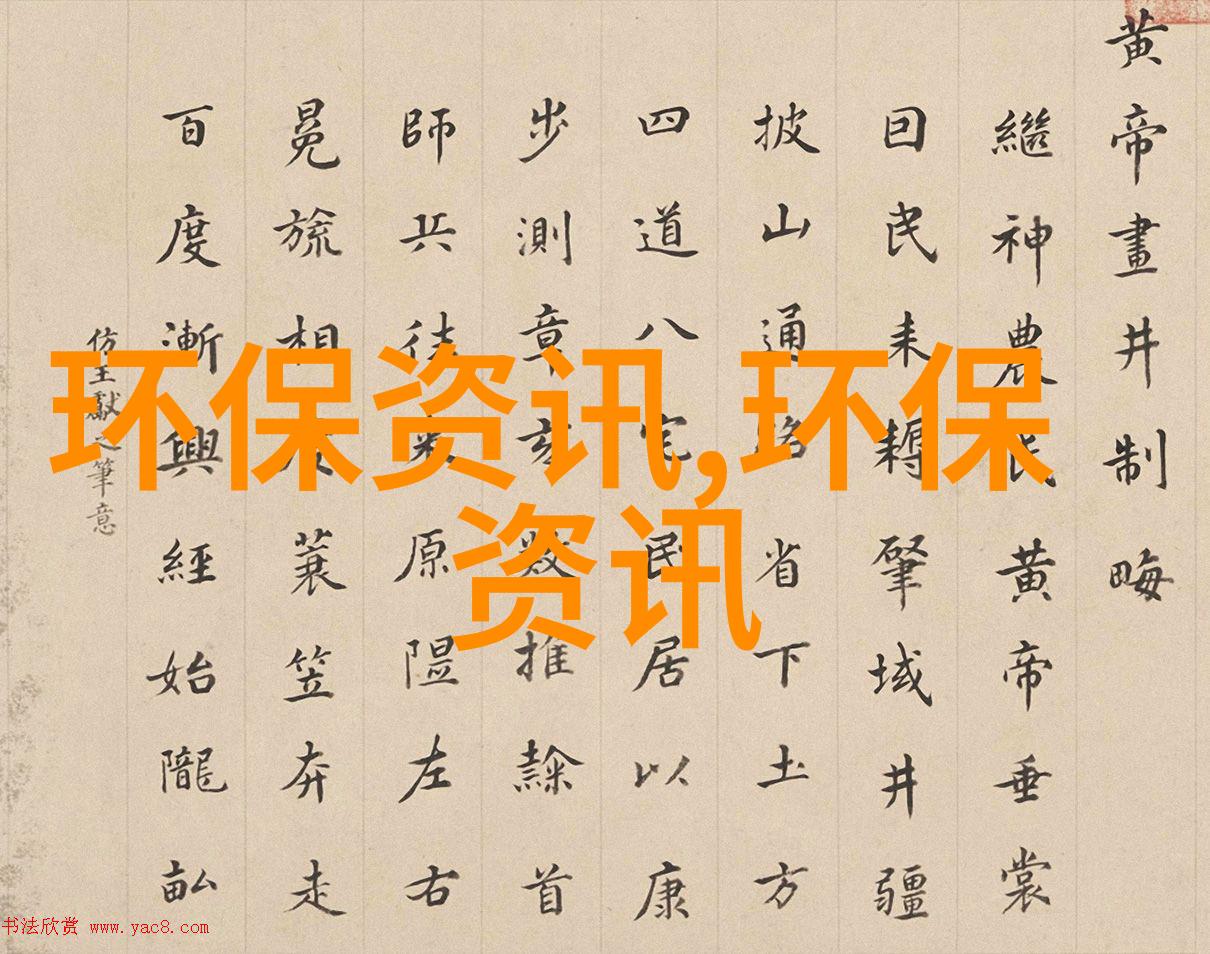 黄帝畫井制畮
繼神農氏黃帝垂裳
囙民耒耨肇域井疆
披山通路省下土方
四道八宅民居以康
步測章亥数推隸首
師兵徒衆原隰左右
冕旒相及蓑笠奔走
百度漸興經始隴畝
仿王獻之筆意
环保资讯,环保
资讯
书法欣赏 www.yac8.com